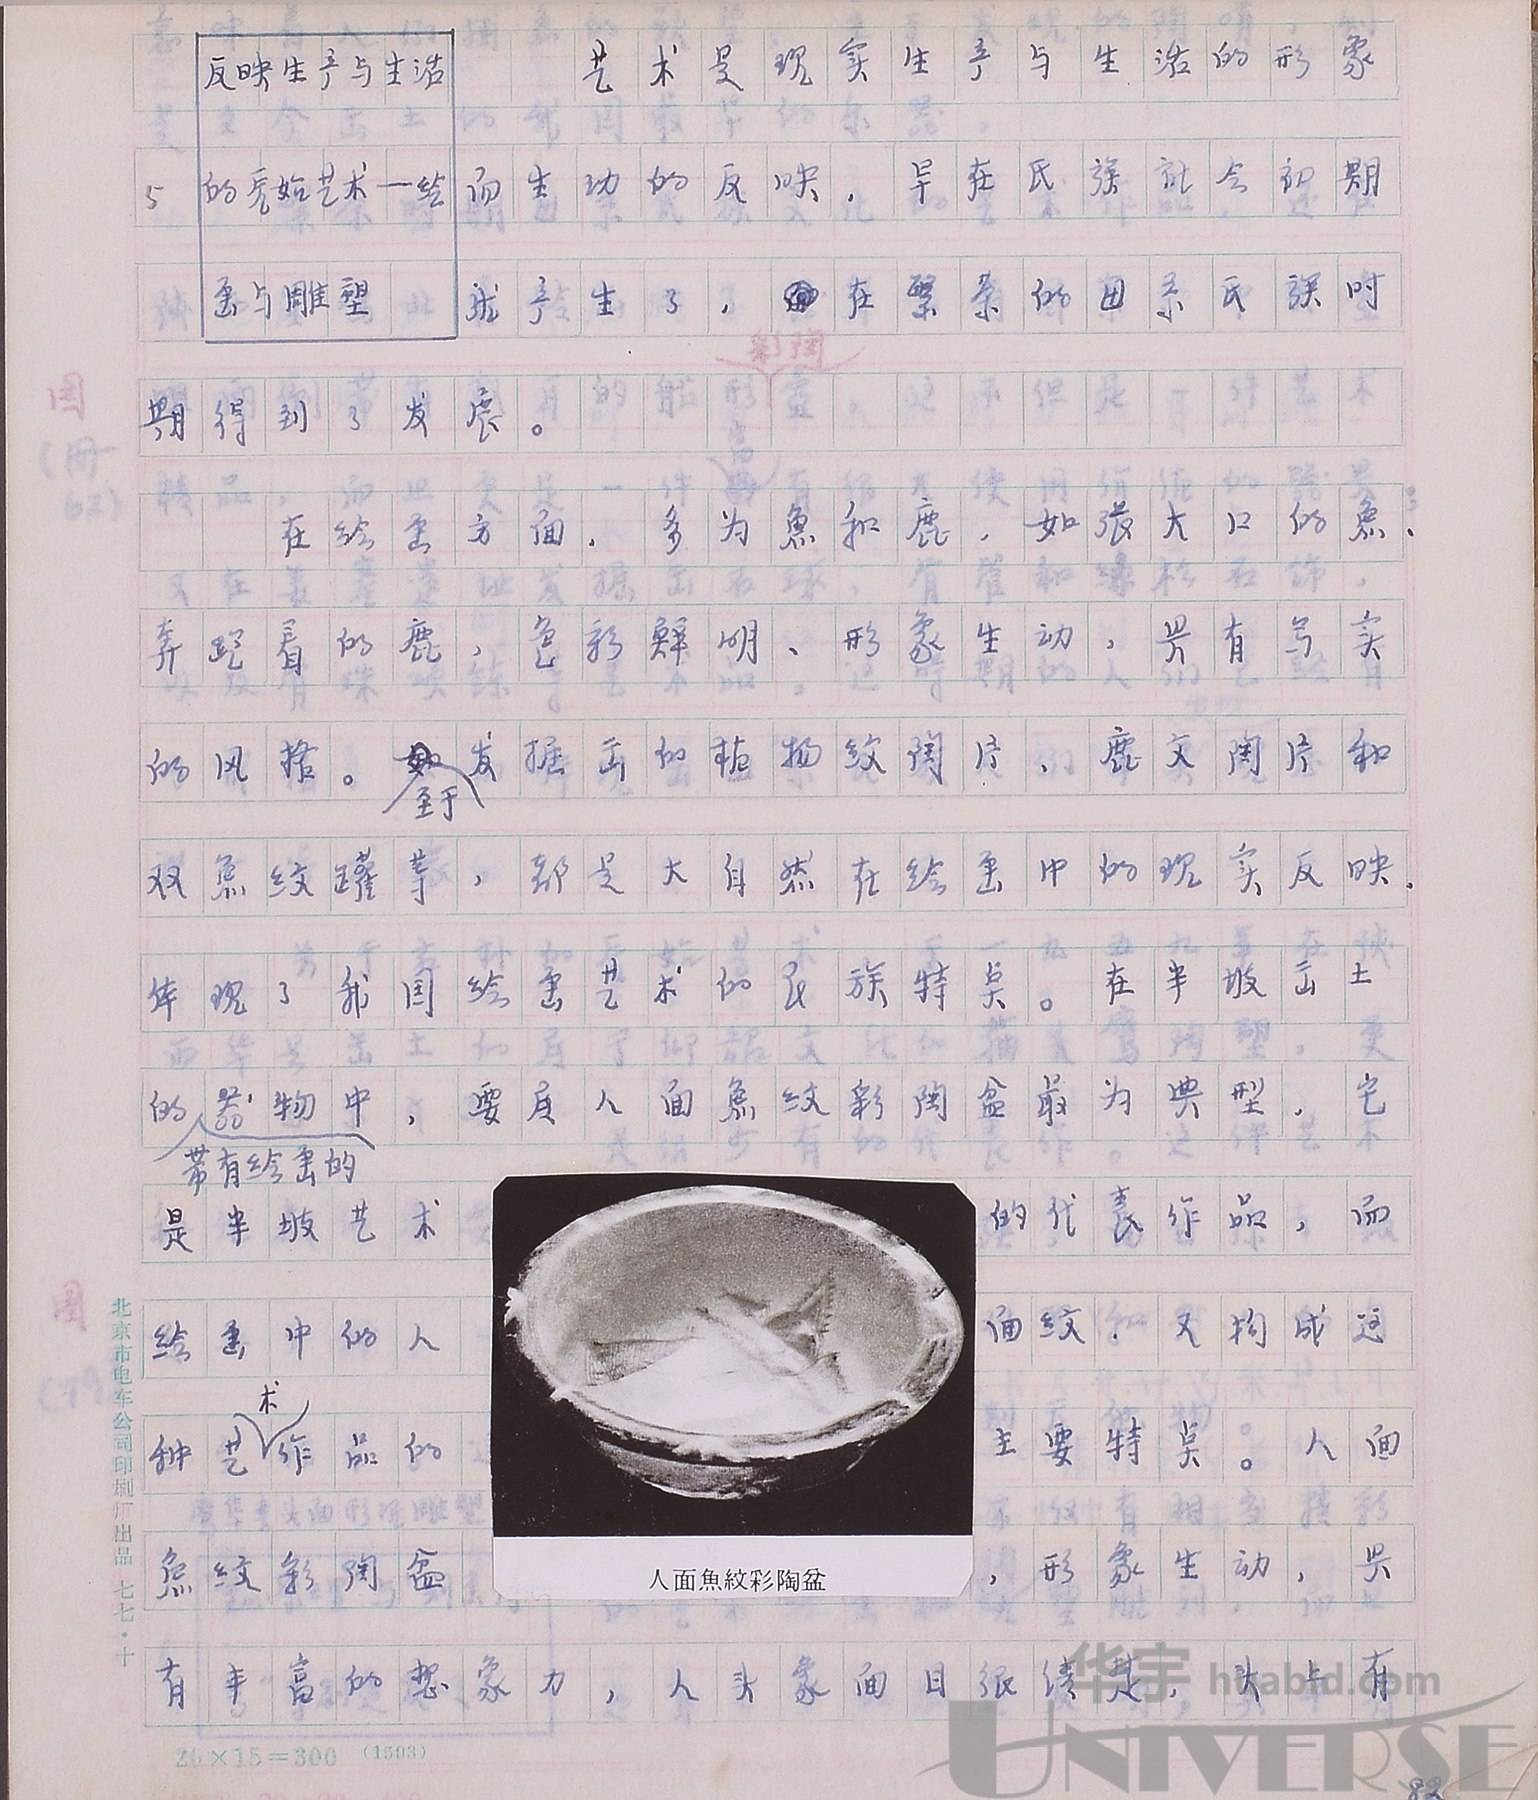 反映生产与生活
艺术是现实生产与生活的形象
5
的原始艺术—绘
而生动的反映，早在氏族社会初期
画与雕塑
就产生了，在繁荣的母系氏族时
彩陶
图
期得到了发展。
在绘画方面，多为鱼和鹿，如张大口的鱼、
奔跑着的鹿，色彩鲜明、形象生动，具有写实
的风格。至于发掘出的植物纹陶片、鹿文陶片和
双鱼纹罐等，都是大自然在绘画中的现实反映.
体现了我国绘画艺术的民族特点。在半坡出土
的器物中，要属人面鱼纹彩陶盆最为典型，它
带有绘画的
是半坡艺术的代表作品，而
图
绘画中的人面纹，又构成这
术
种艺作品的主要特点。人面
鱼纹彩陶盆，形象生动，具
人面魚紋彩陶盆
有丰富的想象力，人头象面目很清楚，头上有
北京市电车公司印刷厂出品 七七·十
20×15=300 (1503)
华宇 huabid.com
UNIVERSE
82